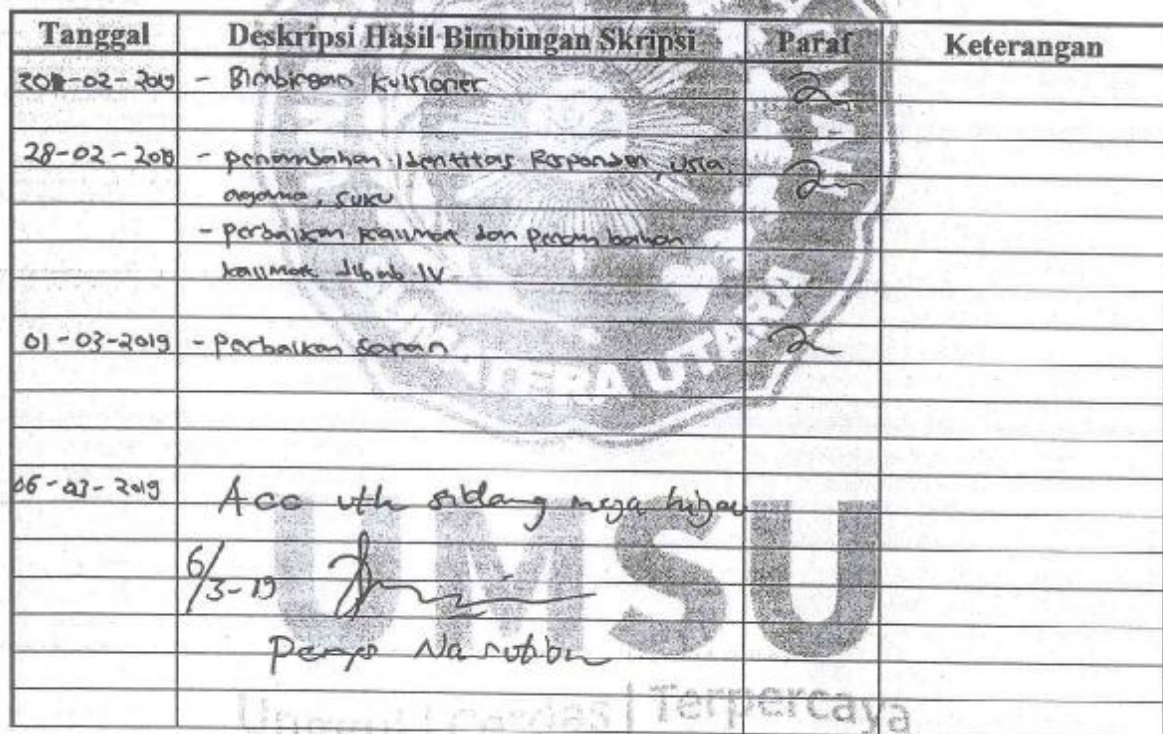 Tanggal Deskripsi Hasil Bimbingan Skripsi Paraf Keterangan
-02-2019 - Bimbingan Kuisioner
28-02-2019 - penambahan identitas Responden, usia,
agama, suku
- perbaikan kalimat dan penambahan
kalimat di bab IV
01-03-2019 - perbaikan saran
06-03-2019 Acc utk sidang meja hijau
6/3-19
Nasution
SUMATERA UTARA
UMSU
Unggul | Cerdas | Terpercaya